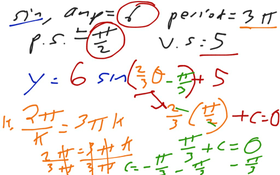 sin, amp = 6 period = 3π
p.s. = π/2 v.s. = 5
y = 6 sin(2/3 θ - π/3) + 5
k · 2π/k = 3π k
2/3 (π/2) + c = 0
2π/3π = 3πk/3π
π/3 + c = 0
c = -π/3 -π/3 -π/3